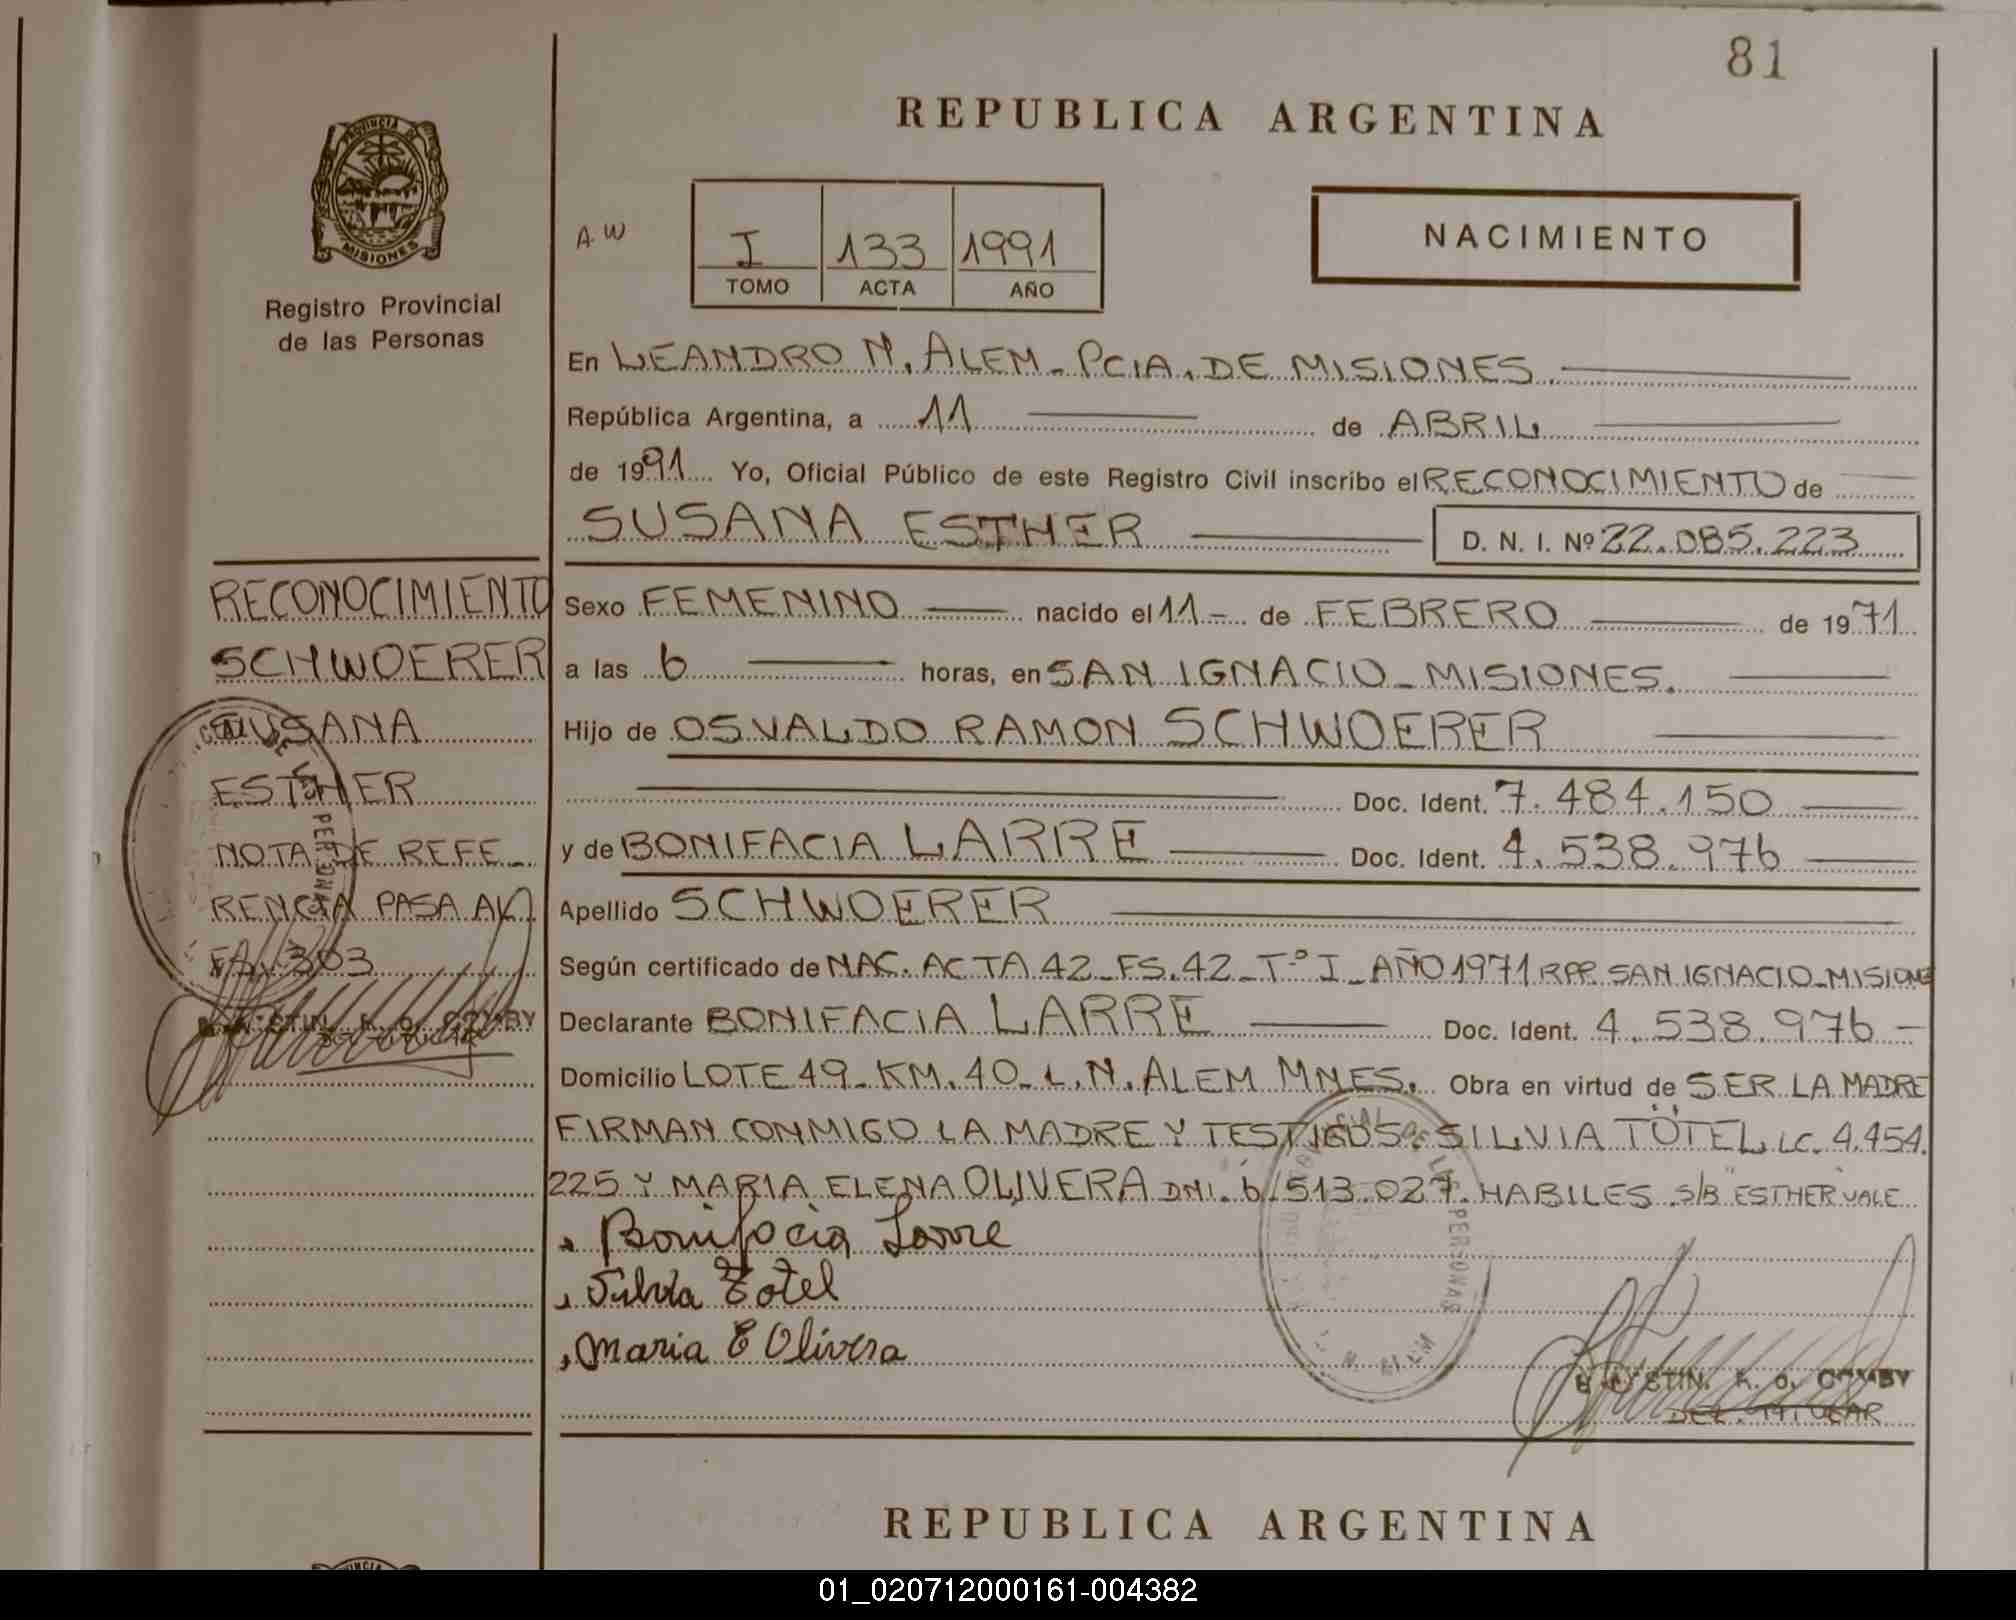 81
REPUBLICA ARGENTINA
PROVINCIA DE
MISIONES
Registro Provincial
de las Personas
A.W
I 133 1991
TOMO ACTA AÑO
NACIMIENTO
En LEANDRO N. ALEM - PCIA. DE MISIONES
República Argentina, a 11 de ABRIL
de 1991 Yo, Oficial Público de este Registro Civil inscribo el RECONOCIMIENTO de
SUSANA ESTHER D. N. I. Nº 22.085.223
RECONOCIMIENTO
SCHWOERER
SUSANA
ESTHER
NOTA DE REFE-
RENCIA PASA AL
FS. 303
Sexo FEMENINO nacido el 11 - de FEBRERO de 1971
a las 6 horas, en SAN IGNACIO - MISIONES.
Hijo de OSVALDO RAMON SCHWOERER
Doc. Ident. 7.484.150
y de BONIFACIA LARRE Doc. Ident. 4.538.976
Apellido SCHWOERER
Según certificado de NAC. ACTA 42 - FS. 42 - Tº I - AÑO 1971 RPP. SAN IGNACIO - MISIONES
Declarante BONIFACIA LARRE Doc. Ident. 4.538.976 -
Domicilio LOTE 49 - KM. 40 - L. N. ALEM MNES. Obra en virtud de SER LA MADRE
FIRMAN CONMIGO LA MADRE Y TESTIGOS: SILVIA TÖTEL LC. 4.454.
225 Y MARIA ELENA OLIVERA DNI. 6.513.027. HABILES S/B "ESTHER" VALE
Bonifacia Larre
Silvia Totel
Maria E Olivera
DEL. TITULAR
REPUBLICA ARGENTINA
01_020712000161-004382